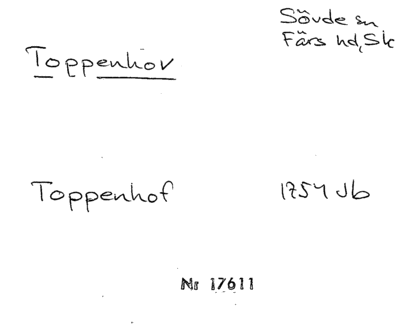 Sövde sn
Färs hd, Sk
Toppenhov
Toppenhof 1754 Jb
Nr 17611